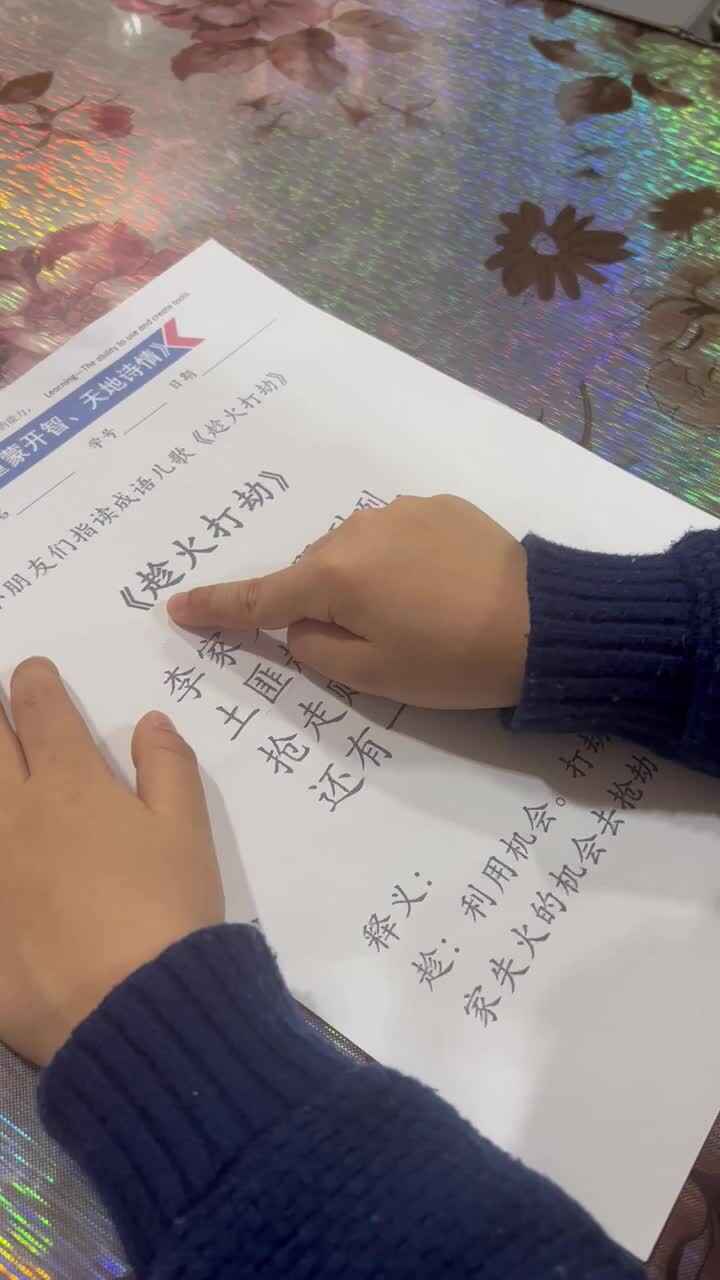 的能力。 Learning—The ability to use and create tools
蒙开智、天地诗情》
名 学号 日期
小朋友们指读成语儿歌《趁火打劫》
《趁火打劫》
李家
土匪
抢走
还有一
释义：
趁：利用机会。打劫
家失火的机会去抢劫